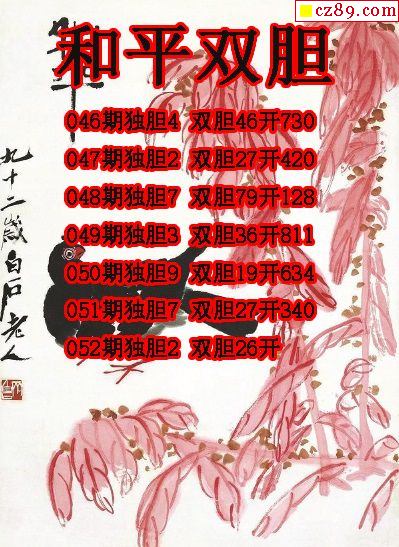 cz89.com
和平双胆
046期独胆4 双胆46开730
047期独胆2 双胆27开420
048期独胆7 双胆79开128
049期独胆3 双胆36开811
050期独胆9 双胆19开634
051期独胆7 双胆27开340
052期独胆2 双胆26开
九十二岁白石老人